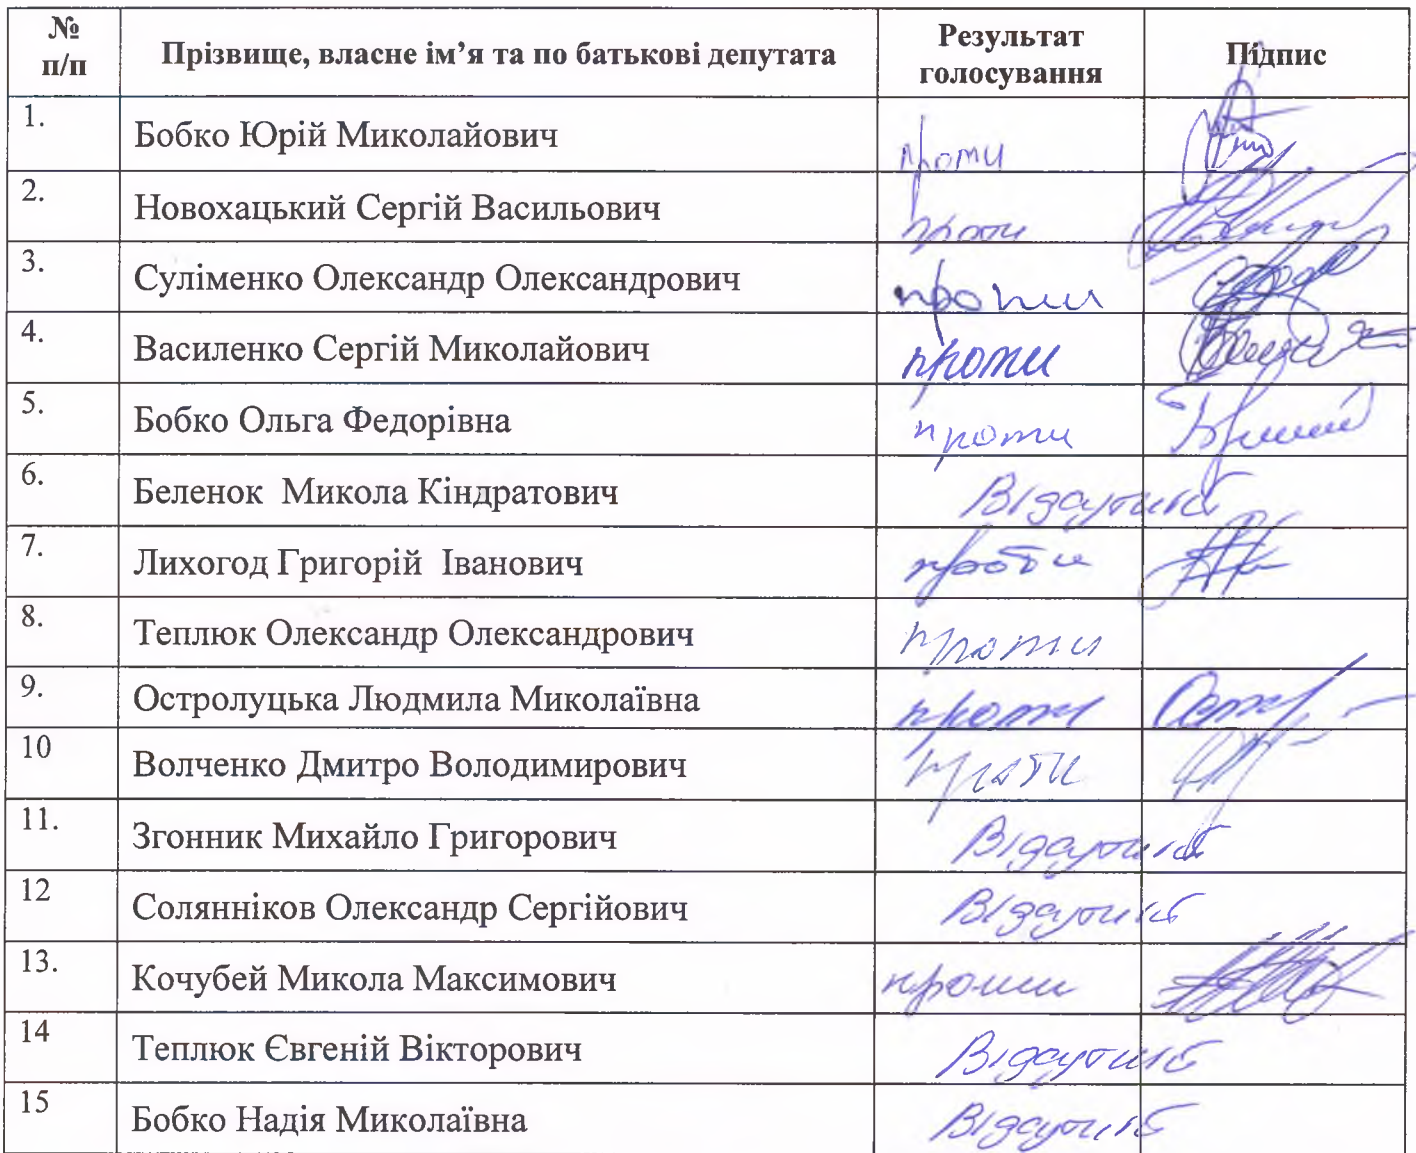 № п/п Прізвище, власне ім’я та по батькові депутата Результат голосування Підпис
1. Бобко Юрій Миколайович проти
2. Новохацький Сергій Васильович проти
3. Суліменко Олександр Олександрович проти
4. Василенко Сергій Миколайович проти
5. Бобко Ольга Федорівна проти
6. Беленок Микола Кіндратович Відсутній
7. Лихогод Григорій Іванович проти
8. Теплюк Олександр Олександрович проти
9. Остролуцька Людмила Миколаївна проти
10 Волченко Дмитро Володимирович проти
11. Згонник Михайло Григорович Відсутній
12 Солянніков Олександр Сергійович Відсутній
13. Кочубей Микола Максимович проти
14 Теплюк Євгеній Вікторович Відсутній
15 Бобко Надія Миколаївна Відсутній